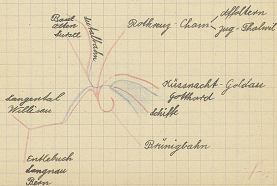 Basel
Olten
Sursee
Seetalbahn
Rotkreuz - Cham
Affoltern
Zug - Thalwil
Küssnacht - Goldau
Gotthard
Schiffe
Brünigbahn
Langental
Willisau
Entlebuch
Langnau
Bern